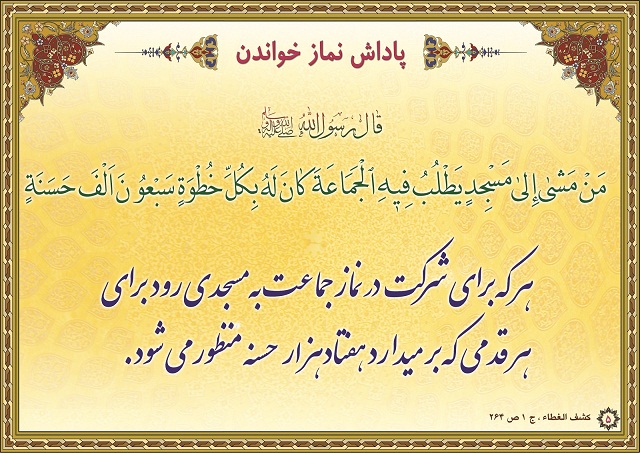 پاداش نماز خواندن
قال رسول الله ﷺ
مَنْ مَشىٰ إِلىٰ مَسْجِدٍ يَطْلُبُ فِيهِ ٱلْجَمَاعَةَ كَانَ لَهُ بِكُلِّ خُطْوَةٍ سَبْعُونَ اَلْفَ حَسَنَةٍ
هر که برای شرکت در نماز جماعت به مسجدی رود برای
هر قدمی که بر میدارد هفتاد هزار حسنه منظور می شود.
کشف الغطاء ، ج ۱ ص ۲۶۴
۵